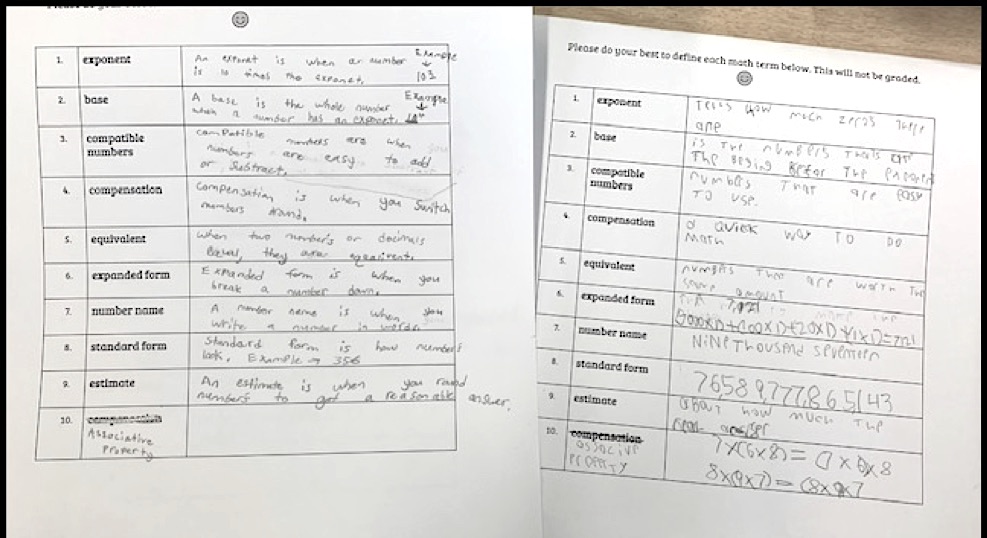 1. exponent
An exponet is when a number Example
is 10 times the exponet. 10³
2. base
A base is the whole number Example
when a number has an exponet.
3. compatible numbers
compatible numbers are when
numbers are easy to add
or subtract.
4. compensation
Compensation is when you switch
numbers around.
5. equivalent
When two number's or decimals
Equal, they are
6. expanded form
Expanded form is when you
break a number down.
7. number name
A number name is when you
write a number in words.
8. standard form
Standard form is how numbers
look. Example → 356
9. estimate
An estimate is when you round
numbers to get a reasonable answer.
10.
Associative
Property
Please do your best to define each math term below. This will not be graded.
1. exponent
Tells how much zeros there
are
2. base
is the numbers
The
3. compatible numbers
numbers that are easy
To use.
4. compensation
a quick way TO DO
Math
5. equivalent
that are worth the
same amount
6. expanded form
7. number name
NiNe Thousand Seventeen
8. standard form
76589,777,865,143
9. estimate
about how much the
10. compensation
PropeRTY
7x(6x8)=
8x(9x7)=